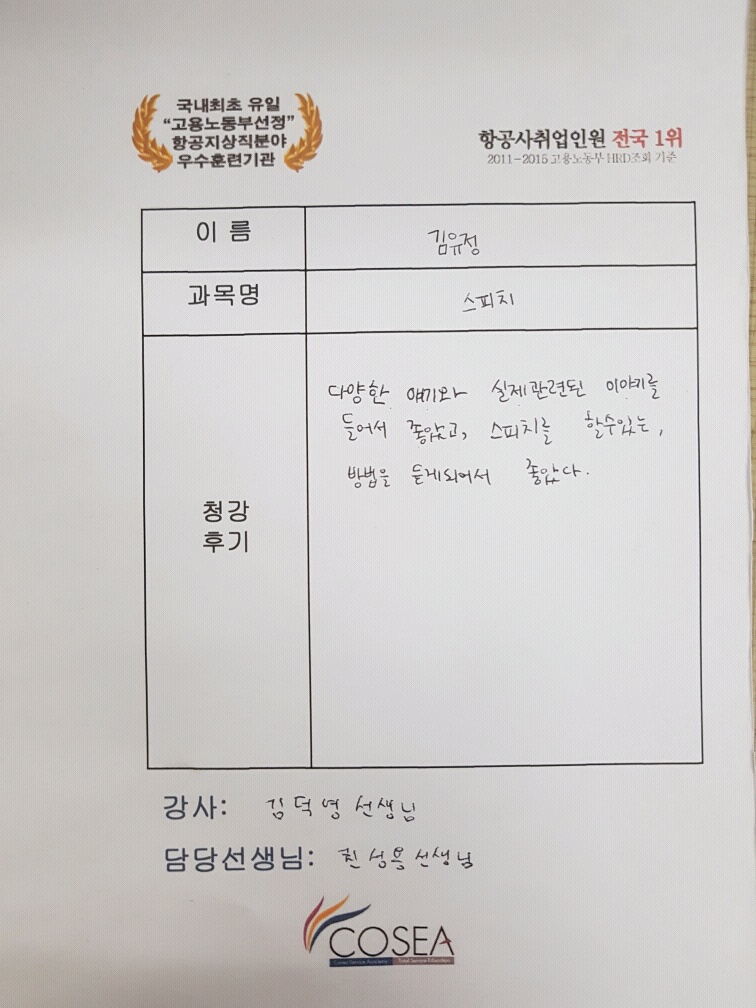 국내최초 유일
"고용노동부선정"
항공지상직분야
우수훈련기관
항공사취업인원 전국 1위
2011-2015 고용노동부 HRD조회 기준
이 름
김유정
과목명
스피치
청강
후기
다양한 얘기와 실제관련된 이야기를
들어서 좋았고, 스피치를 할수있는,
방법을 듣게되어서 좋았다.
강사: 김덕영 선생님
담당선생님: 최성용 선생님
COSEA
Total Service Education